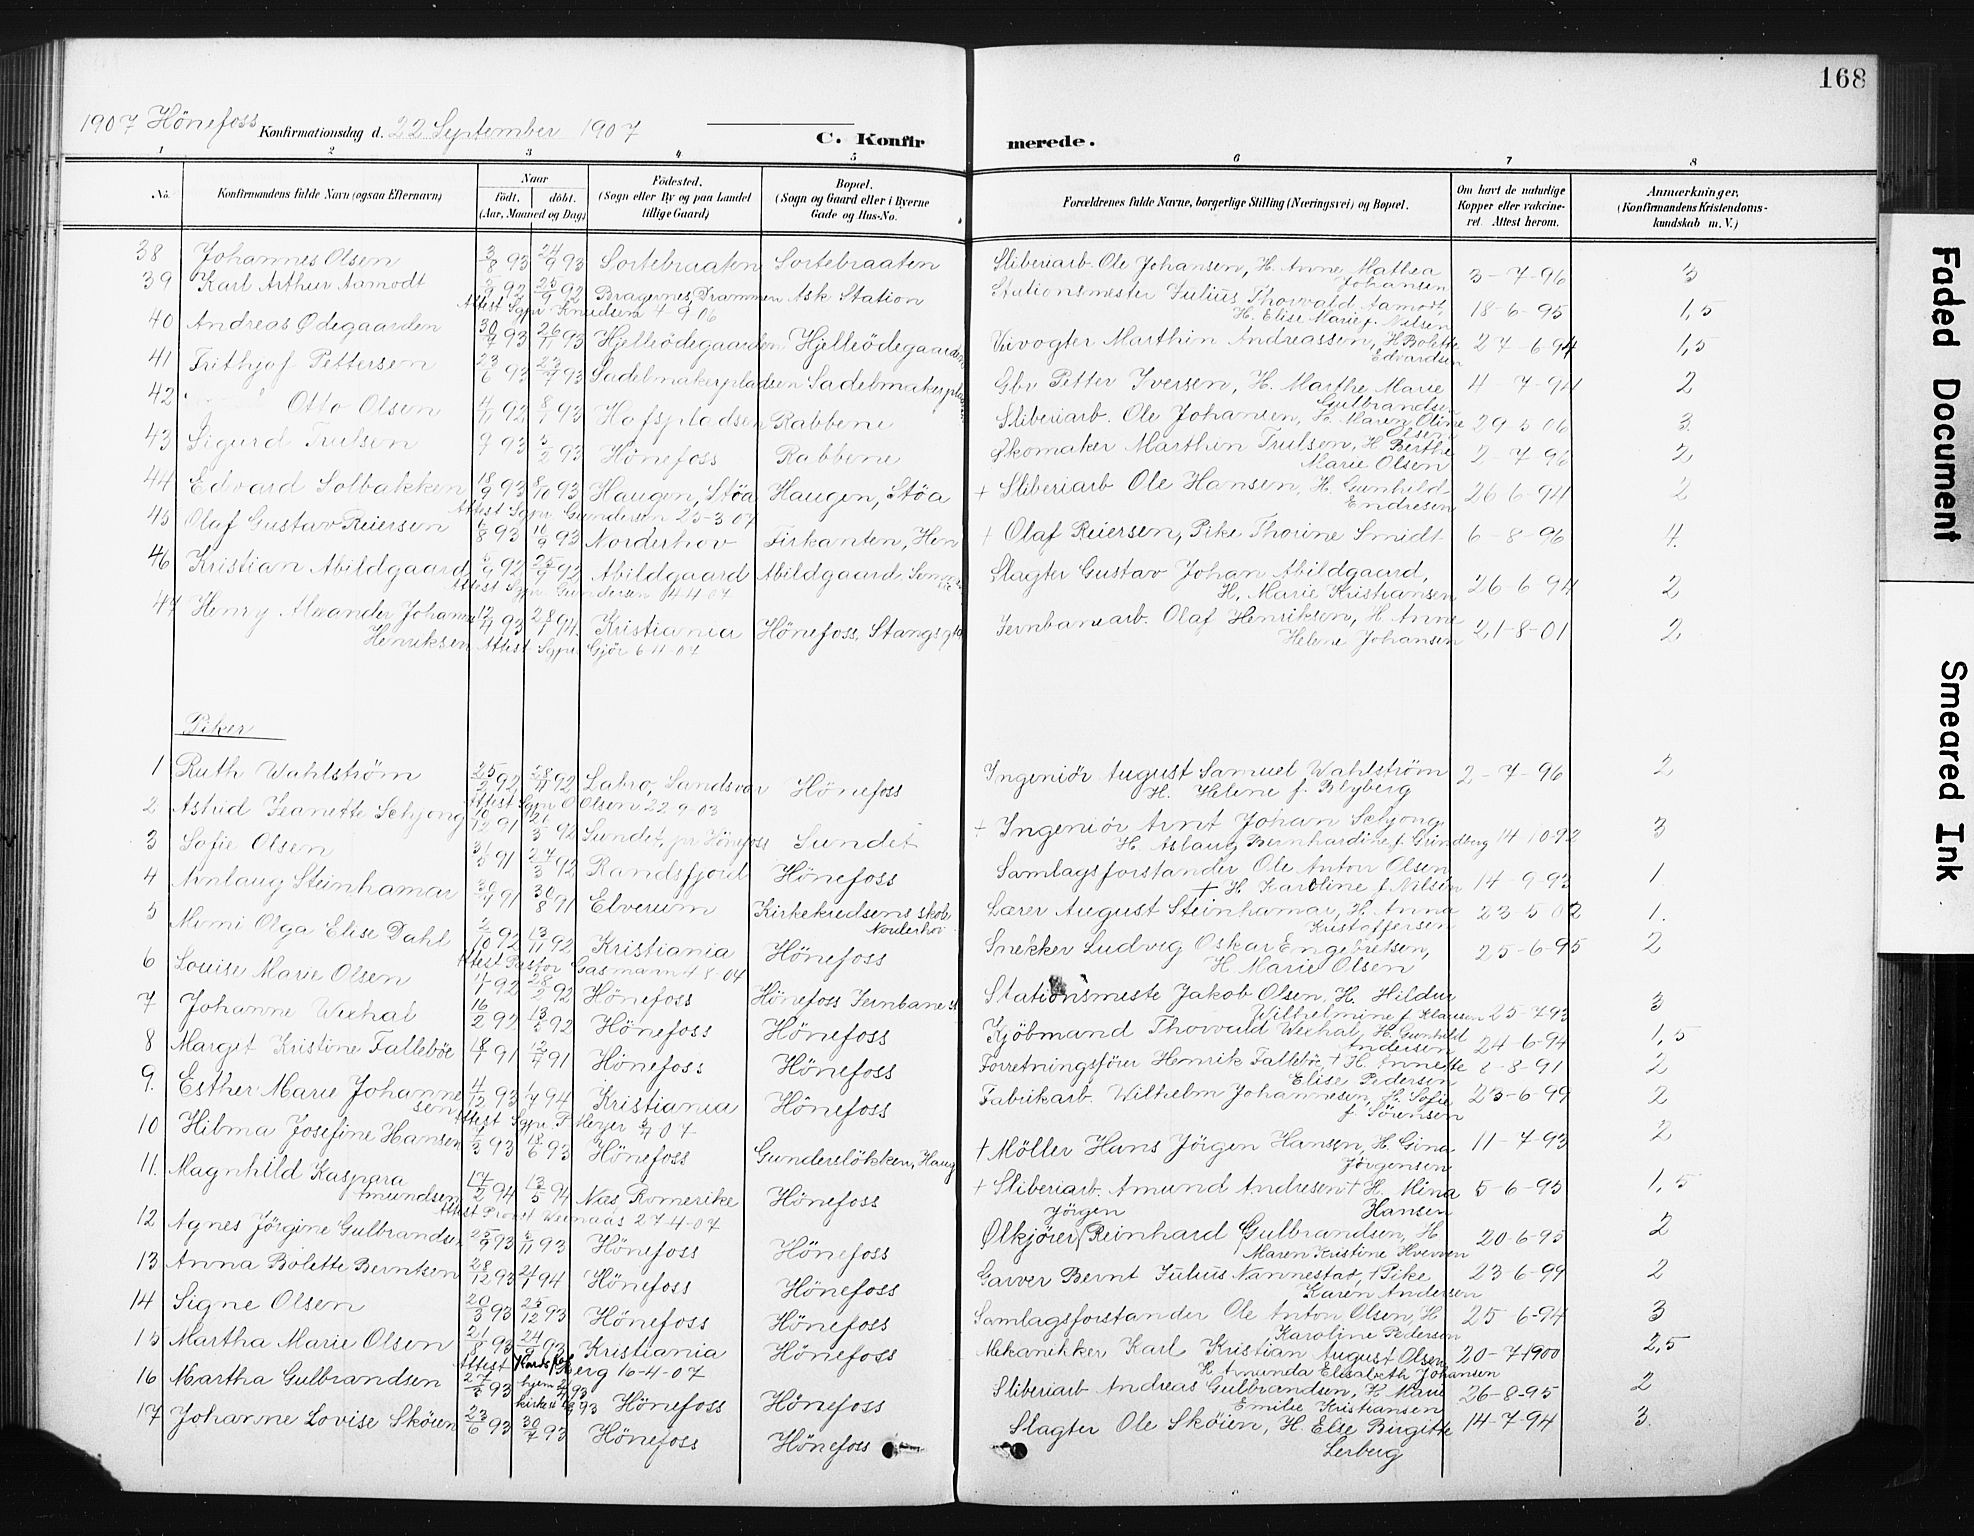 168
1907 Hönefoss Konfirmationsdag d. 22 September 1907
C. Konfirmerede.
1 2 3 4 5 6 7 8
No.
Konfirmandens fulde Navn (ogsaa Efternavn)
Naar
födt. döbt.
(Aar, Maaned og Dag)
Födested.
(Sogn eller By og paa Landet
tillige Gaard)
Bopæl.
(Sogn og Gaard eller i Byerne
Gade og Hus-No.
Forældrenes fulde Navne, borgerlige Stilling (Næringsvei) og Bopæl.
Om havt de naturlige
Kopper eller vakcine-
ret. Attest herom.
Anmærkninger.
(Konfirmandens Kristendoms-
kundskab m. V.)
38 Johannes Olsen 3/8 93 24/9 93 Sortebraaten Sortebraaten Sliberiarb. Ole Johansen, H. Anne Mathea Johansen 3-7-96 3
39 Karl Arthur Aamodt 92 92 Bragernes, Drammen Ask Station Stationsmester Julius Thorvald Aamodt, H. Elise Marie f. Nilsen 18-6-95 1,5
Attest Sgpr. Knudsen 4-9 06
40 Andreas Ødegaarden 30/7 93 26/11 93 Hjelleödegaarden Hjelleödegaarden Veivogter Marthin Andreassen, H Bolette Edvardsen 27-6-94 1,5
41 Frithjof Pettersen 23/6 93 23/7 93 Sadelmakerpladsen Sadelmakerpladsen Gbr Petter Iversen, H. Marthe Marie Gulbrandsen 4-7-94 2
42 Otto Olsen 4/11 92 8/1 93 Hofspladsen Rabbene Sliberiarb. Ole Johansen, H. Maren Oline Olsen 29 5 06 3
43 Sigurd Trulsen 93 93 Hönefoss Rabbene Skomaker Marthin Trulsen, H Berthe Marie Olsen 2-7-96 2
44 Edvard Solbakken 18/9 93 8/10 93 Haugen, Stöa Haugen, Stöa + Sliberiarb Ole Hansen, H. Gunhild Endresen 26 6-94 2
Attest Sgpr Gundersen 25-3 07
45 Olaf Gustav Reiersen 93 93 Norderhov Firkanten, Hen + Olaf Reiersen, Pike Thorine Smidt 6-8-96 4.
46 Kristian Abildgaard 92 92 Abildgaard Abildgaard Slagter Gustav Johan Abildgaard, H. Marie Kristiansen 26 6 94 2
Attest Sgpr Gundersen 14 4 07
47 Henry Alexander Johannes Henriksen 93 94 Kristiania Hönefoss, Stangsgt Jernbanearb. Olaf Henriksen, H Anne Helene Johansen 21-8-01 2
Attest Sgpr Gjör 6 4-07
Piker
1 Ruth Wahlström 25/2 92 92 Labro, Sandsvær Hönefoss Ingeniör August Samuel Wahlström H. Helene f. Blyberg 2-7-96 2
Attest Sgpr O Olsen 22 9-03
2 Astrid Jeanette Schjong 10/12 91 21/5 92 Sundet, pr Hönefoss Sundet + Ingeniör Arnt Johan Schjong H. Aslaug Bernhardine f. Grundberg 14 10-92 3
3 Sofie Olsen 91 27/3 92 Randsfjord Hönefoss Samlagsforstander Ole Anton Olsen + H. Karoline f Nilsen 14-9-93 1
4 Arnlaug Steinhamar 91 30/8 91 Elverum Kirkekredsens skole Norderhov Lærer August Steinhamar, H. Anna Kristoffersen 23-5 02 1.
5 Mimi Olga Elise Dahl 2/10 92 13/11 92 Kristiania Hönefoss Snekker Ludvig Oskar Engebretsen, H Marie Olsen 25-6-95 2
Attest Pastor Gasmann 4 8 04
6 Louise Marie Olsen 92 28/2 92 Hönefoss Hönefoss Jernbanest Stationsmeste Jakob Olsen, H. Hildur Wilhelmine f Klausen 25-7 93 3
7 Johanne Wexhal 16/2 92 13/5 92 Hönefoss Hönefoss Kjöbmand Thorvald Wexhal, H. Gunhild Andersen 24-6-94 1,5
8 Marget Kristine Falleböe 91 91 Hönefoss Hönefoss Forretningsförer Henrik Falleböe, + H. Annette Elise Pedersen 8-91 2
9. Esther Marie Johannesen 4/12 93 94 Kristiania Hönefoss Fabrikarb. Wilhelm Johannesen, H. Sofie f Sörensen 23-6-99 2
Attest Sgpr P Meyer 07
10 Hilma Josefine Hansen 93 18/6 93 Hönefoss Gunderslökken, Haug + Möller Hans Jörgen Hansen, H. Gina Jörgensen 11-7-93 2
11. Magnhild Kaspara Amundsen 17/2 94 13/5 94 Næs Romerike Hönefoss + Sliberiarb. Amund Andresen + H. Mina Hansen 5-6-95 1,5
Attest Provst 27-4-07
12 Agnes Jörgine Gulbrandsen 25/9 93 93 Hönefoss Hönefoss Ølkjörer Jörgen Reinhard Gulbrandsen, H Maren Kristine Hverven 20-6-95 2
13 Anna Bolette Berntsen 28/12 93 94 Hönefoss Hönefoss Garver Bernt Julius Nannestad, + Pike Karen Andersen 23-6-99 2
14 Signe Olsen 20/3 93 25/12 93 Hönefoss Hönefoss Samlagsforstander Ole Anton Olsen, H Karoline Pedersen 25-6-94 3
15 Martha Marie Olsen 21/8 93 24/9 93 Kristiania Hönefoss Mekanekker Karl Kristian August Olsen H. Amunda Elisabeth Johansen 20-7-1900 2,5
Attest 16-4-07
16 Martha Gulbrandsen 27/3 93 hjem 93 kirke 93 Hönefoss Hönefoss Sliberiarb Andreas Gulbrandsen, H Marie Emilie Kristiansen 26-8-95 2
17 Johanne Lovise Sköien 23/6 93 30/7 93 Hönefoss Hönefoss Slagter Ole Sköien, H. Else Birgitte Lerberg 14-7-94 3.
Faded Document
Smeared Ink